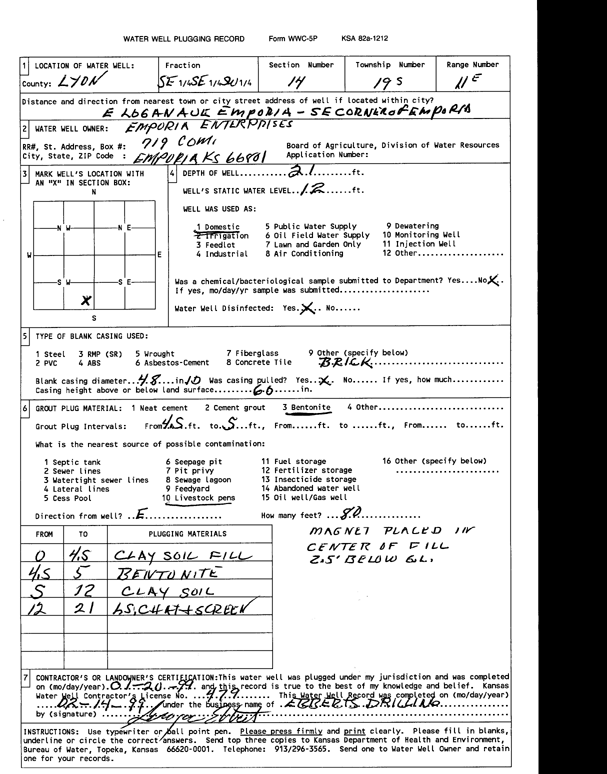 WATER WELL PLUGGING RECORD Form WWC-5P KSA 82a-1212
1 LOCATION OF WATER WELL: Fraction Section Number Township Number Range Number
County: LYON SE 1/4 SE 1/4 SW 1/4 14 19 S 11 E
Distance and direction from nearest town or city street address of well if located within city?
E LOGAN AVE EMPORIA - SE CORNER OF EMPORIA
2 WATER WELL OWNER: EMPORIA ENTERPRISES
RR#, St. Address, Box #: 719 COM. Board of Agriculture, Division of Water Resources
City, State, ZIP Code : EMPORIA KS 66801 Application Number:
3 MARK WELL'S LOCATION WITH AN "X" IN SECTION BOX:
N
N W N E
W E
S W S E
X
S
4 DEPTH OF WELL......21.......ft.
WELL'S STATIC WATER LEVEL..12.....ft.
WELL WAS USED AS:
1 Domestic 5 Public Water Supply 9 Dewatering
2 Irrigation 6 Oil Field Water Supply 10 Monitoring Well
3 Feedlot 7 Lawn and Garden Only 11 Injection Well
4 Industrial 8 Air Conditioning 12 Other...................
Was a chemical/bacteriological sample submitted to Department? Yes....No X.
If yes, mo/day/yr sample was submitted...................
Water Well Disinfected: Yes.X.. No......
5 TYPE OF BLANK CASING USED:
1 Steel 3 RMP (SR) 5 Wrought 7 Fiberglass 9 Other (specify below)
2 PVC 4 ABS 6 Asbestos-Cement 8 Concrete Tile BRICK........................
Blank casing diameter...48....in ID Was casing pulled? Yes..X. No...... If yes, how much...........
Casing height above or below land surface.........60......in.
6 GROUT PLUG MATERIAL: 1 Neat cement 2 Cement grout 3 Bentonite 4 Other..........................
Grout Plug Intervals: From 4.5.ft. to.5...ft., From......ft. to ......ft., From...... to......ft.
What is the nearest source of possible contamination:
1 Septic tank 6 Seepage pit 11 Fuel storage 16 Other (specify below)
2 Sewer lines 7 Pit privy 12 Fertilizer storage ......................
3 Watertight sewer lines 8 Sewage lagoon 13 Insecticide storage
4 Lateral lines 9 Feedyard 14 Abandoned water well
5 Cess Pool 10 Livestock pens 15 Oil well/Gas well
Direction from well? ..E................. How many feet? ...80...............
FROM TO PLUGGING MATERIALS
0 4.5 CLAY SOIL FILL
4.5 5 BENTONITE
5 12 CLAY SOIL
12 21 LS, CHAT + SCREEN
MAGNET PLACED IN
CENTER OF FILL
2.5' BELOW G.L.
7 CONTRACTOR'S OR LANDOWNER'S CERTIFICATION: This water well was plugged under my jurisdiction and was completed
on (mo/day/year).01-20-99. and this record is true to the best of my knowledge and belief. Kansas
Water Well Contractor's License No. ...477........ This Water Well Record was completed on (mo/day/year)
.....02-14-99. under the business name of .EBBERTS DRILLING............
by (signature)
INSTRUCTIONS: Use typewriter or ball point pen. Please press firmly and print clearly. Please fill in blanks,
underline or circle the correct answers. Send top three copies to Kansas Department of Health and Environment,
Bureau of Water, Topeka, Kansas 66620-0001. Telephone: 913/296-3565. Send one to Water Well Owner and retain
one for your records.